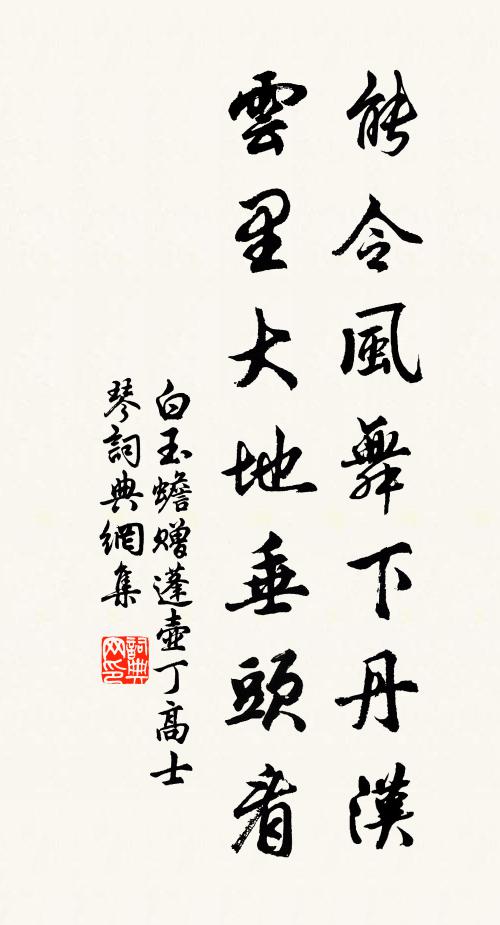 能令風舞下丹漢
雲里大地垂頭看
白玉蟾贈蓬壺丁高士
琴詞典網集
詞典網印